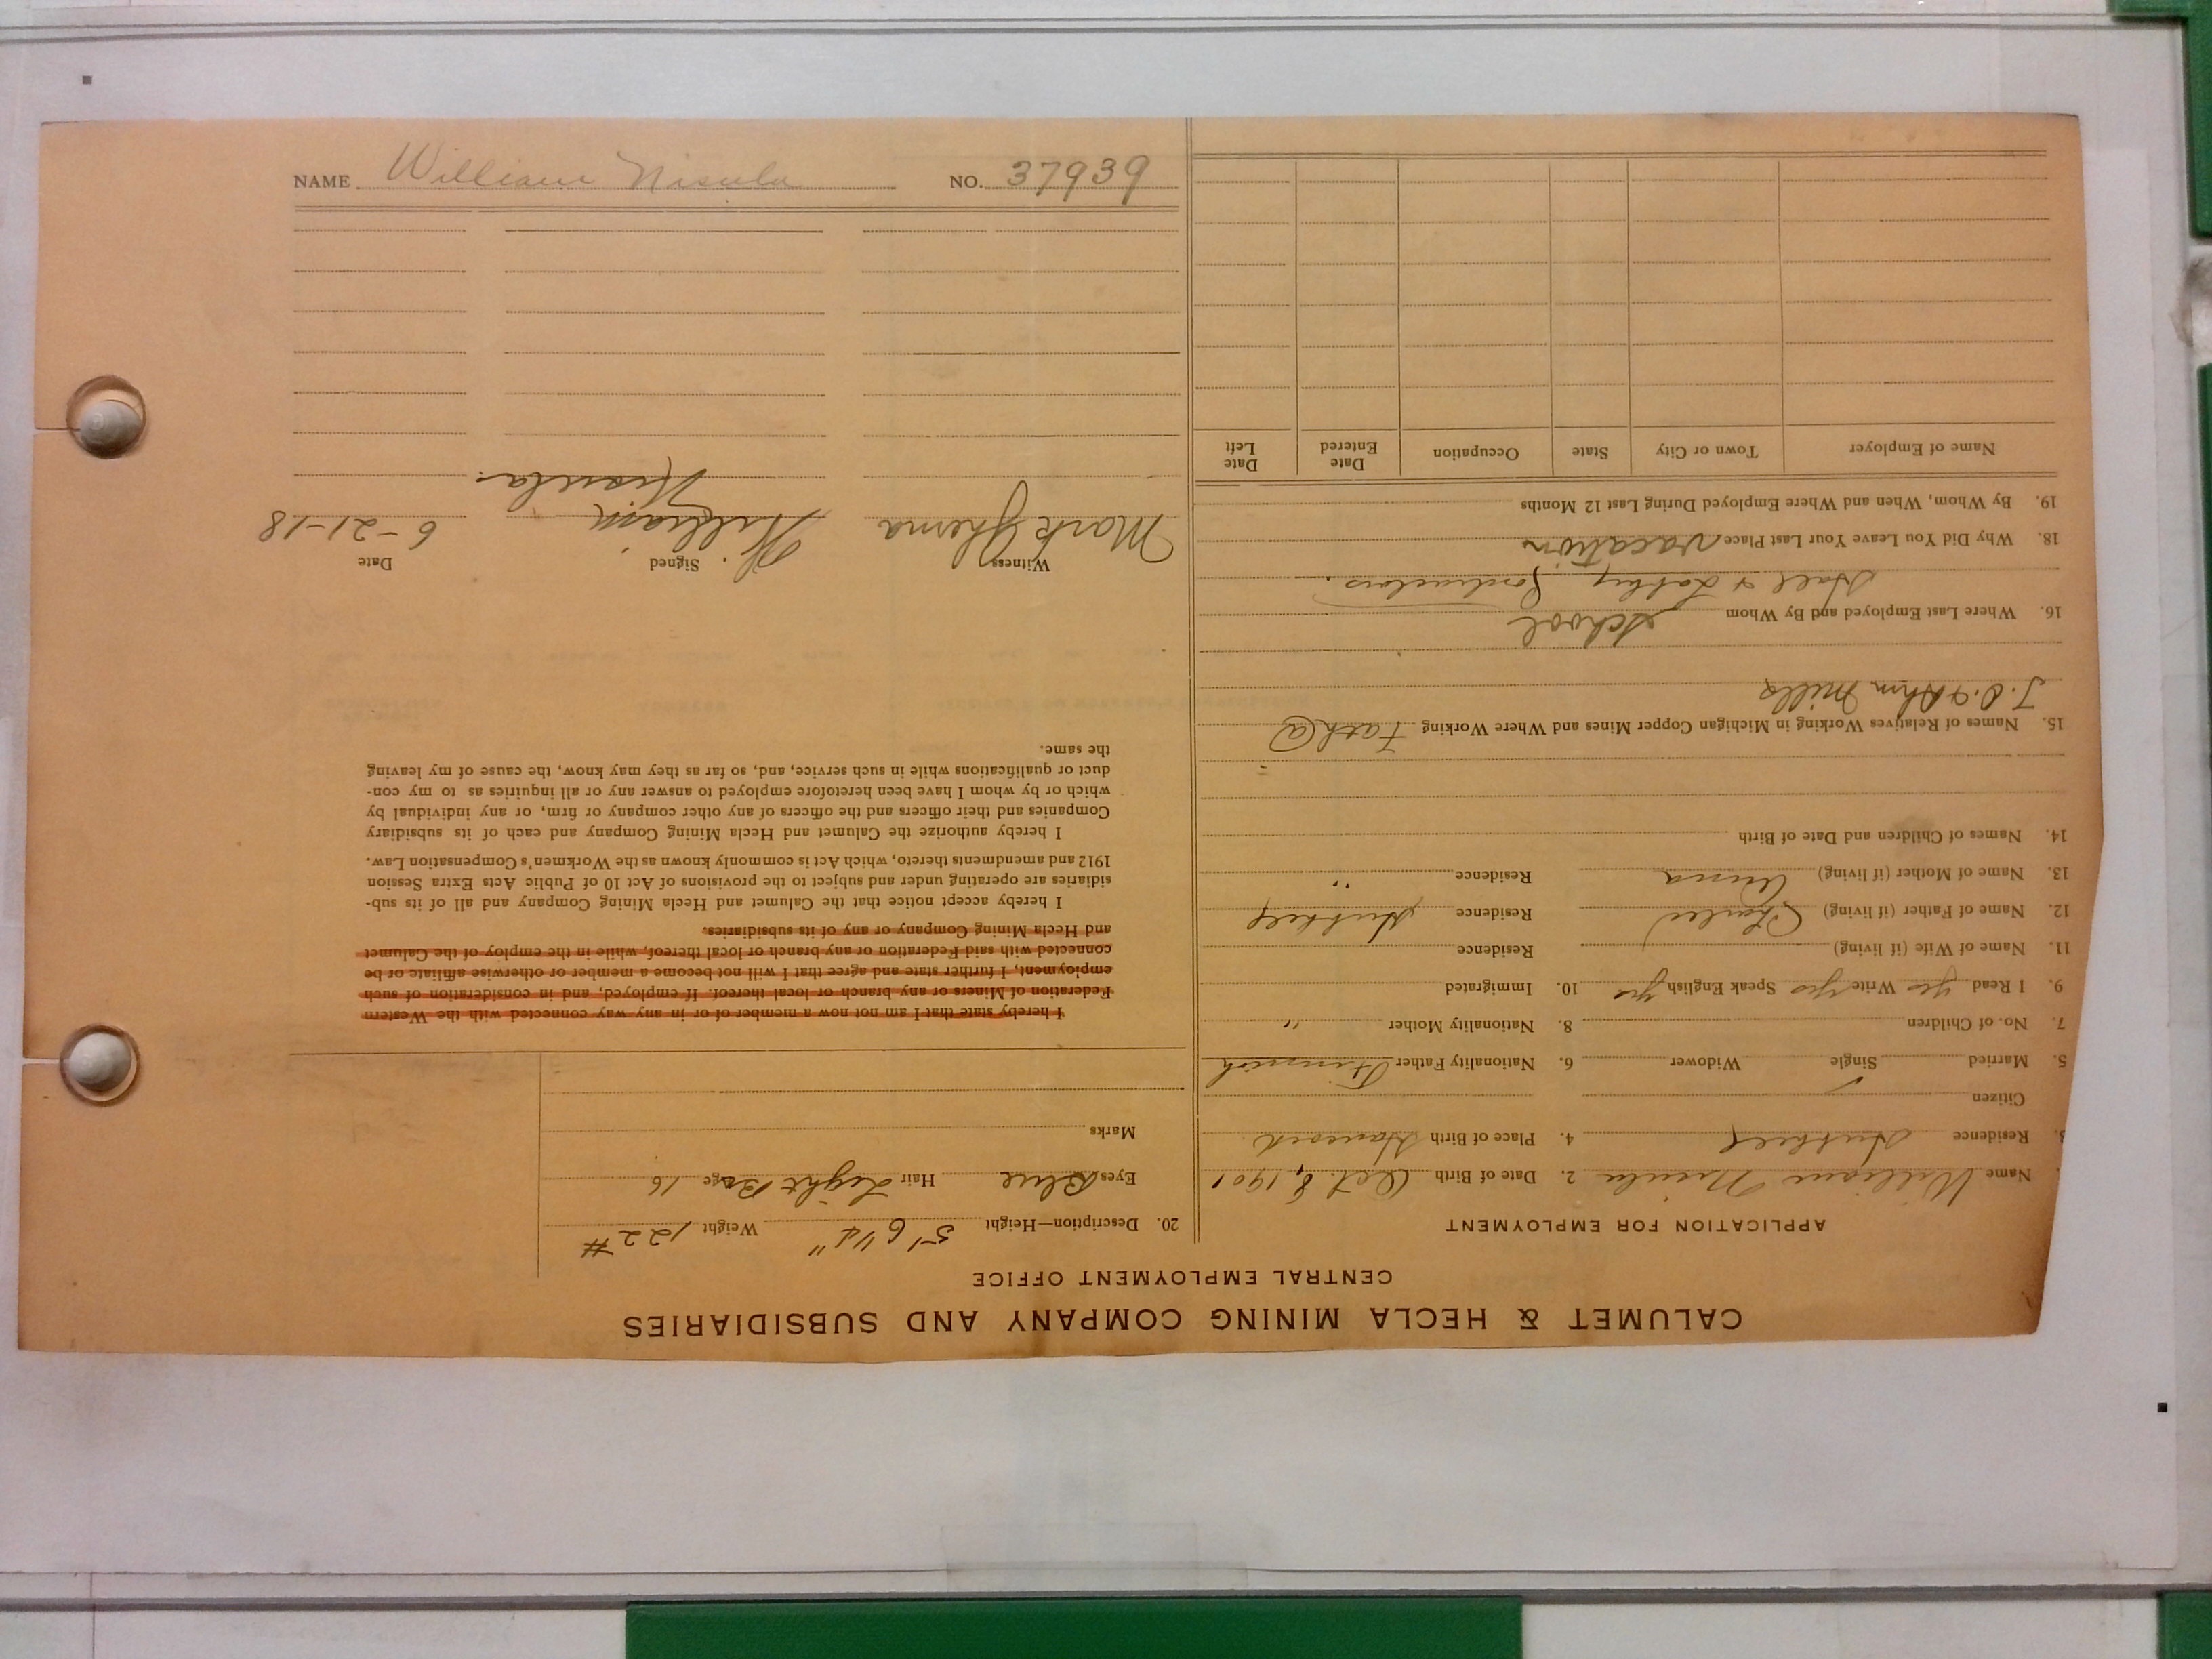 CALUMET & HECLA MINING COMPANY AND SUBSIDIARIES
CENTRAL EMPLOYMENT OFFICE
APPLICATION FOR EMPLOYMENT
Name William Nisula 2. Date of Birth Oct. 8, 1901
3. Residence Hubbell 4. Place of Birth Hancock
Citizen
5. Married Single ✓ Widower 6. Nationality Father Finnish
7. No. of Children 8. Nationality Mother "
9. I Read yes Write yes Speak English yes 10. Immigrated
11. Name of Wife (if living) Residence
12. Name of Father (if living) Charles Residence Hubbell
13. Name of Mother (if living) Anna Residence "
14. Names of Children and Date of Birth
15. Names of Relatives Working in Michigan Copper Mines and Where Working Fath @
Mills
16. Where Last Employed and By Whom School
Hall & Contractors.
18. Why Did You Leave Your Last Place vacation
19. By Whom, When and Where Employed During Last 12 Months
Name of Employer Town or City State Occupation Date Entered Date Left
20. Description—Height 5' 6 Weight 122 #
Eyes Blue Hair Light Age 16
Marks
I hereby state that I am not now a member of or in any way connected with the Western
Federation of Miners or any branch or local thereof. If employed, and in consideration of such
employment, I further state and agree that I will not become a member or otherwise affiliate or be
connected with said Federation or any branch or local thereof, while in the employ of the Calumet
and Hecla Mining Company or any of its subsidiaries.
I hereby accept notice that the Calumet and Hecla Mining Company and all of its sub-
sidiaries are operating under and subject to the provisions of Act 10 of Public Acts Extra Session
1912 and amendments thereto, which Act is commonly known as the Workmen's Compensation Law.
I hereby authorize the Calumet and Hecla Mining Company and each of its subsidiary
Companies and their officers and the officers of any other company or firm, or any individual by
which or by whom I have been heretofore employed to answer any or all inquiries as to my con-
duct or qualifications while in such service, and, so far as they may know, the cause of my leaving
the same.
Witness Signed Date
Mark William 6-21-18
Nisula.
NAME William Nisula NO. 37939